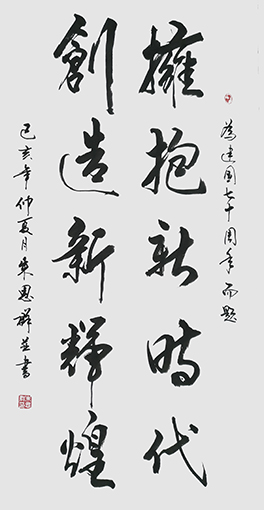 為建國七十周年而題
擁抱新時代
創造新輝煌
己亥年仲夏月吳恩祥並書